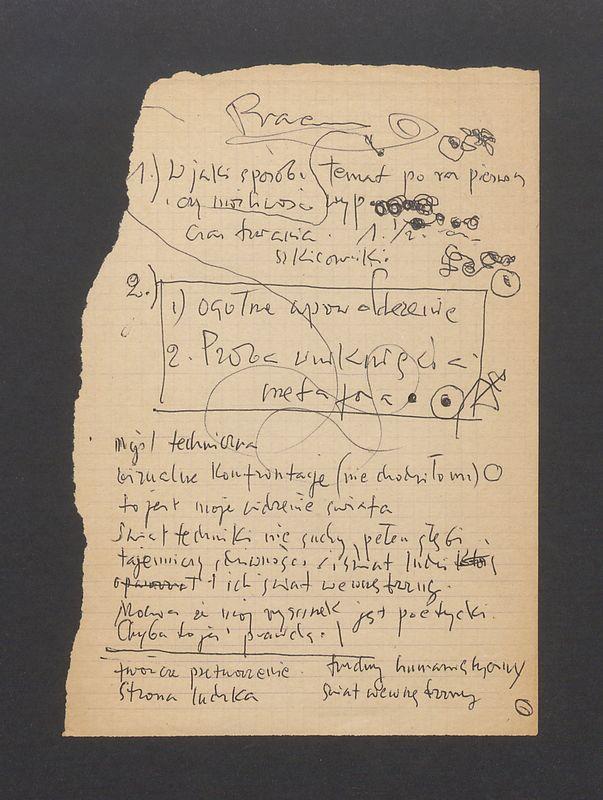 1.) W jaki sposób temat po raz pierwszy
i czy możliwości wyp
czas trwania. 1. 1/2.
szkicownik.
2.)
1) ogólne wprowadzenie
2. Próba uniknięcia
metafora
myśl techniczna
wizualne konfrontacje (nie chodziło mi)
to jest moje widzenie świata
świat techniki nie suchy, pełen głębi
tajemnicy, dziwności i świat ludzi
i ich świat wewnętrzny.
Mówią że mój rysunek jest poetycki.
Chyba to jest prawda.
twórcze przetworzenie. trudny humanistyczny
strona ludzka świat wewnętrzny